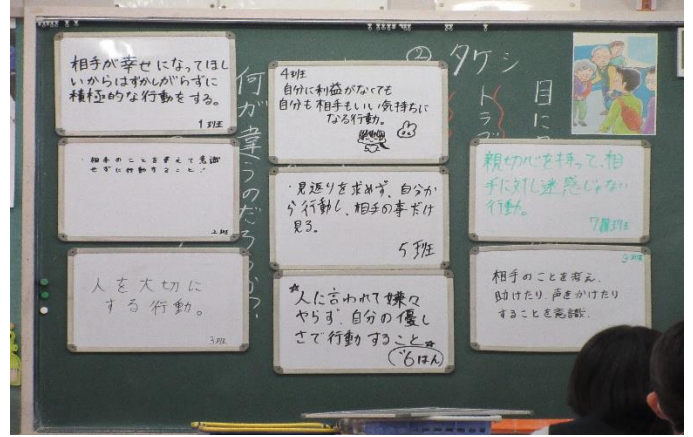 相手が幸せになってほし
いからはずかしがらずに
積極的な行動をする。
1班
・相手のことを考えて意識
せずに行動すること!
2班
人を大切に
する行動。
3班
4班
自分に利益がなくても
自分も相手もいい気持ちに
なる行動。
・見返りを求めず、自分か
ら行動し、相手の事だけ
見る。
5班
人に言われて嫌々
やらず、自分の優し
さで行動すること
6はん
親切心を持って、相
手に対し迷惑じゃない
行動。
7班
相手のことを考え、
助けたり、声をかけたり
することを意識。
何が違うのだろうか?
② タケシ
トラブ
目に